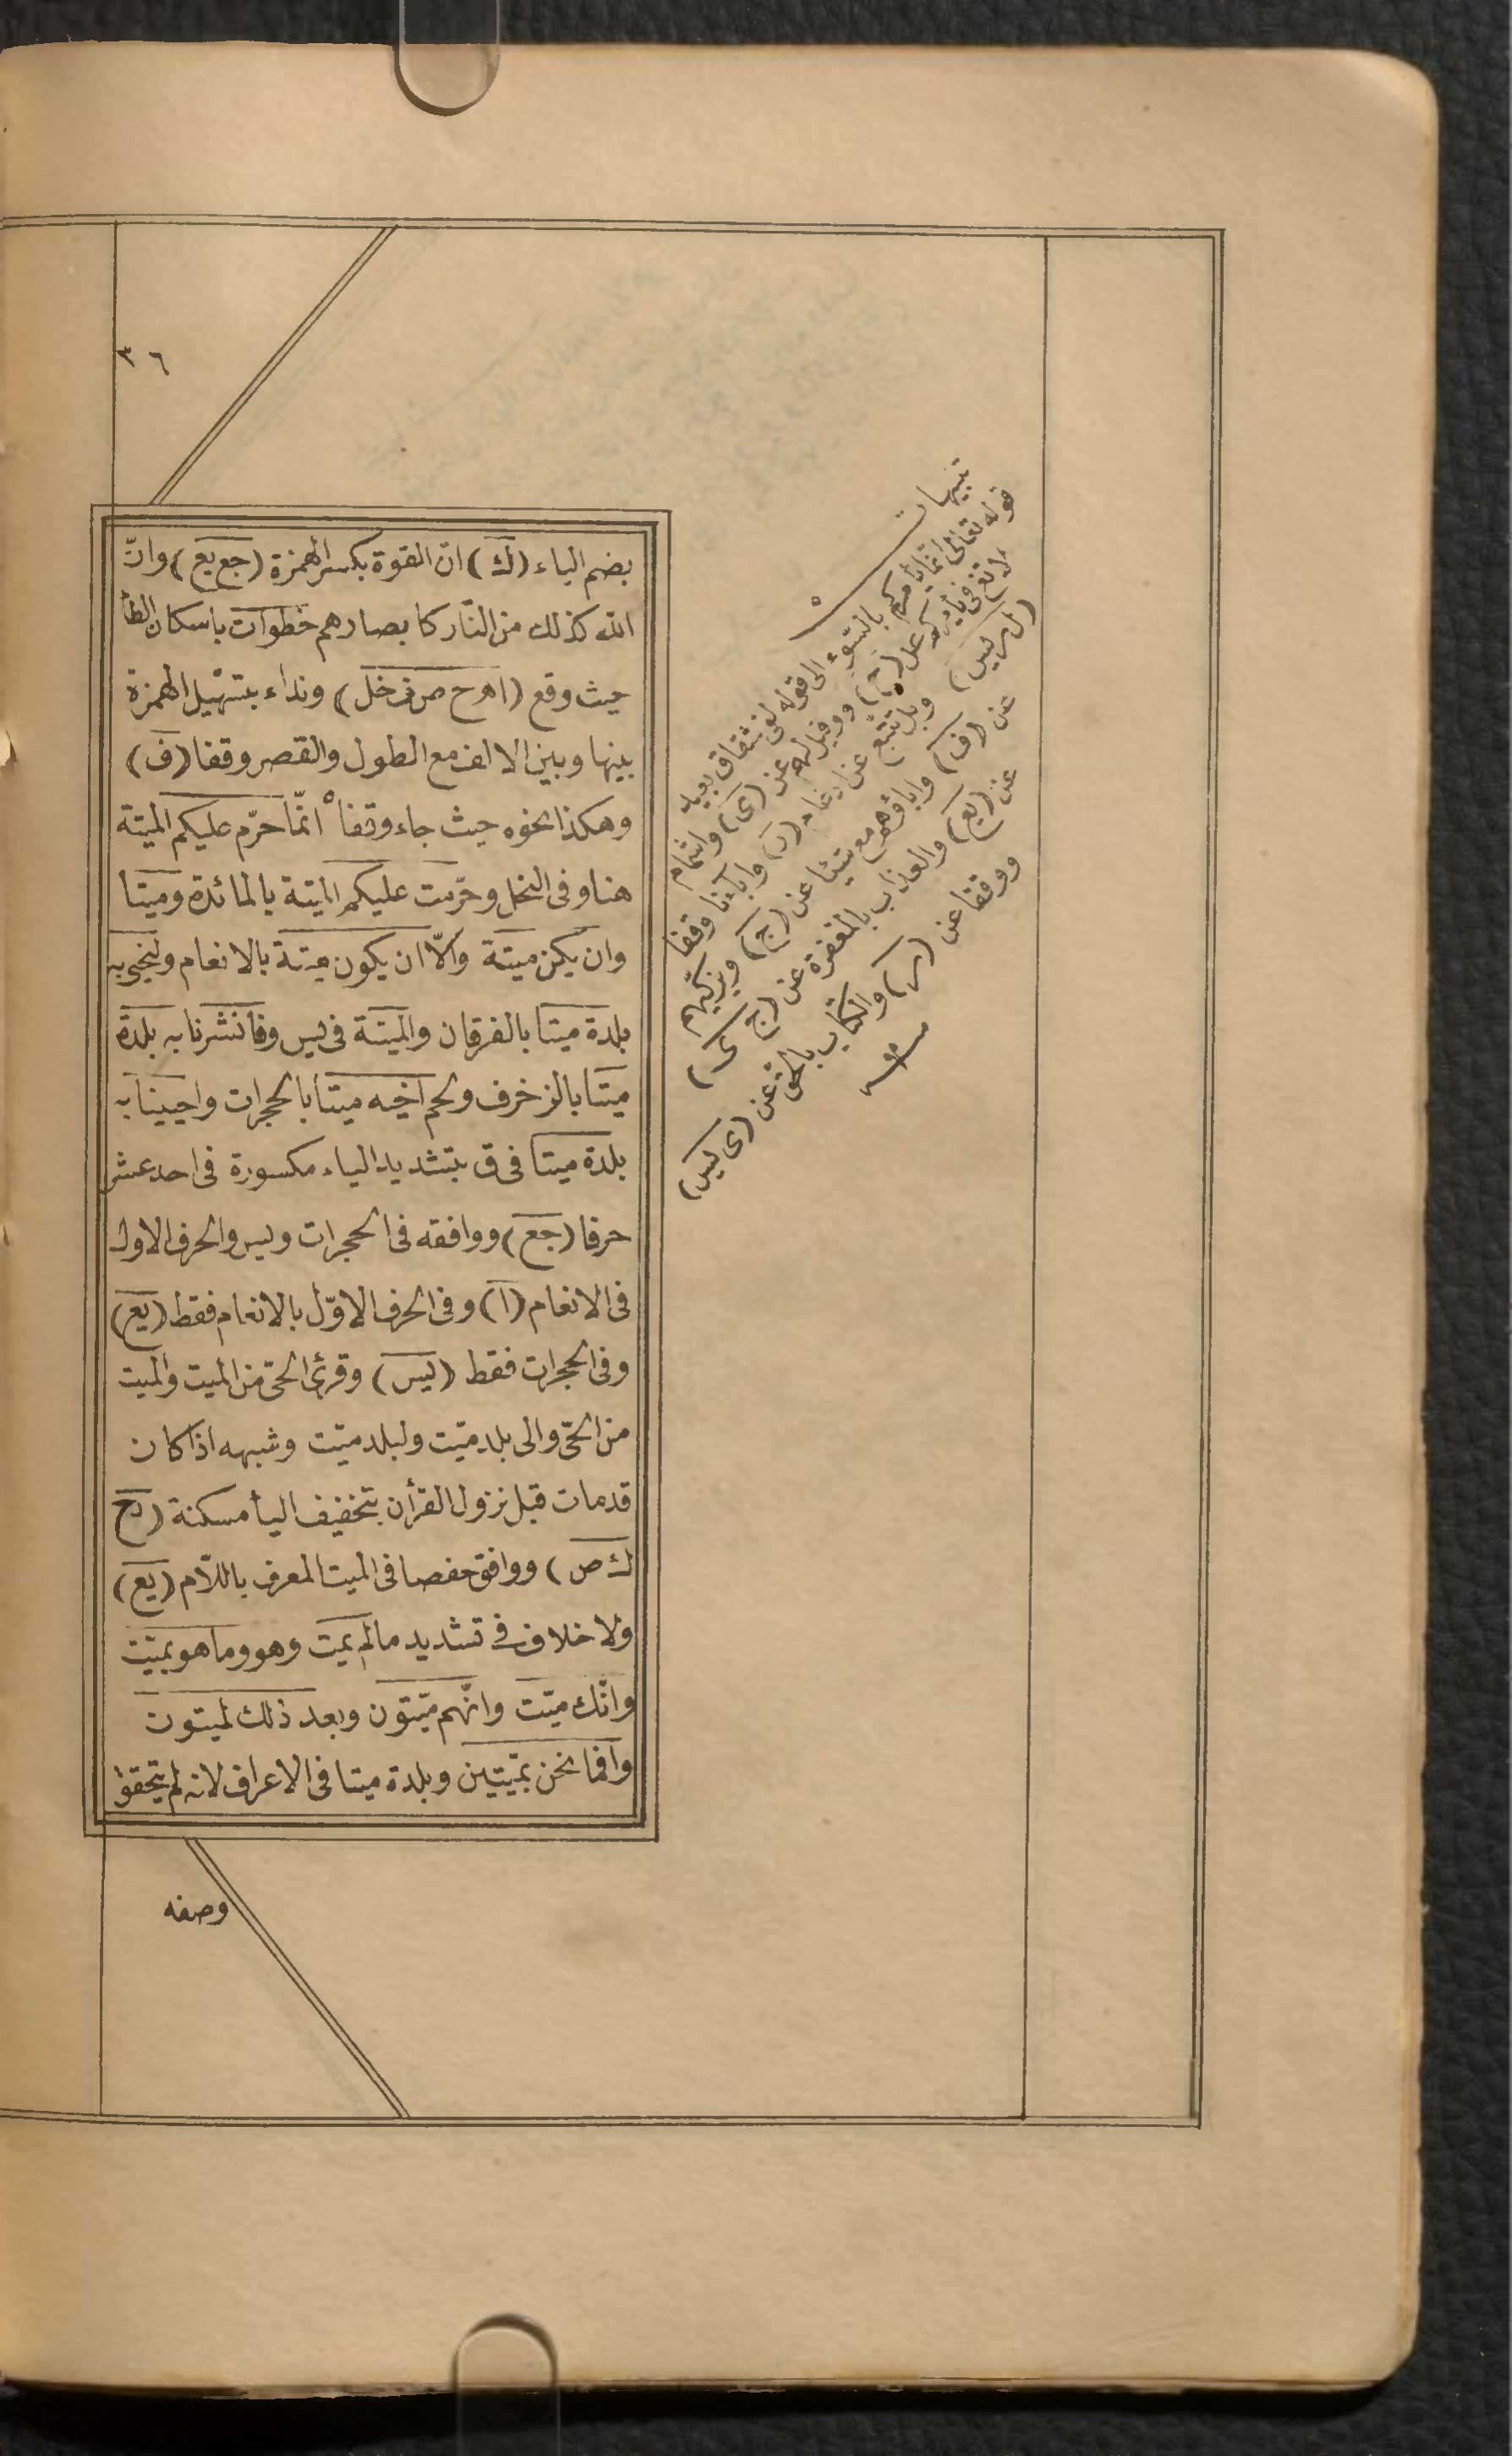 ٣٦
بضم الياء (ك) انّ القوة بكسر الهمزة (جع يع) وانّ
الله كذلك من النّار كا بصارهم خطوات باسكان الطا
حيث وقع (ا ه ح ص ف خل) ونداء بتسهيل الهمزة
بينها وبين الالف مع الطول والقصر وقفا (ف)
وهكذا نحوه حيث جاء وقفا ° انّما حرّم عليكم الميتة
هنا وفى النحل وحرّمت عليكم الميتة بالمائدة وميتا
وان يكن ميتة والّا ان يكون ميتة بالانعام ولنحيى به
بلدة ميتا بالفرقان والميتة فى يس وفانشرنا به بلدة
ميتا بالزخرف ولحم اخيه ميتا بالحجرات واحيينا به
بلدة ميتا فى ق بتشديد الياء مكسورة فى احد عشر
حرفا (جع) ووافقه فى الحجرات ويس والحرف الاول
فى الانعام (ا) وفى الحرف الاوّل بالانعام فقط (يع)
وفى الحجرات فقط (ليس) وقرئ الحىّ من الميت والميت
من الحىّ والى بلد ميّت ولبلد ميّت وشبهه اذا كان
قد مات قبل نزول القرأن بتخفيف اليأ مسكنة (دح
ك ص) ووافق حفصا فى الميت المعرف باللّام (يع)
ولا خلاف فى تشديد ما لم يمت وهو وما هو بميّت
وانّك ميّت وانّهم ميّتون وبعد ذلك لميتون
وافما نحن بميّتين وبلدة ميتا فى الاعراف لانه لم يتحققوا
وصفه
تنبيهات
قوله تعالى انّما يأمركم بالسّوء الى قوله لفى شقاق بعيد
لا تغ فى يأمركم عل (ح) ووقيل لهم عن (ى) واشمام
(ل ر ليس) وبل نتّبع عن ادغام (ر) واباءنا وقفا
عن (ف) واباؤهم مع شيئا عن (ج) ويزكّيهم
عن (يع) والعذاب بالمغفرة عن (ج ى)
ووقفا عن (ر) والكتاب بالحقّ عن (ى ليس)